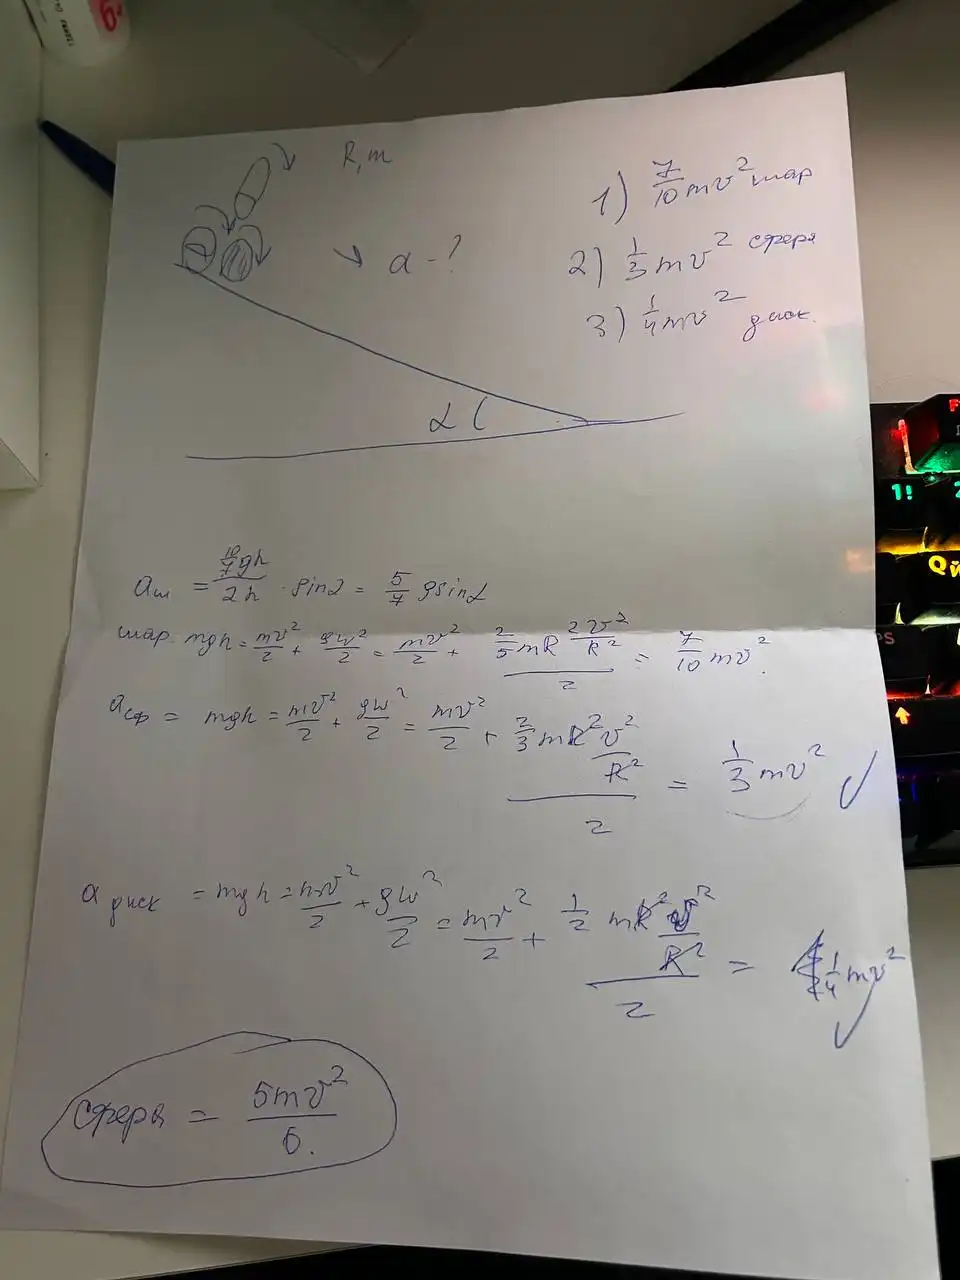 R, m
1) 7/10 mv² шар
a - ?
2) 1/3 mv² сфера
3) 1/4 mv² диск.
α
aш = (10/7 gh)/(2h) · sinα = 5/7 gsinα
шар. mgh = mv²/2 + Jw²/2 = mv²/2 + (2/5 mR² v²/R²)/2 = 7/10 mv².
aсф = mgh = mv²/2 + Jw²/2 = mv²/2 + (2/3 mR² v²/R²)/2 = 1/3 mv² ✓
a диск = mgh = mv²/2 + Jw²/2 = mv²/2 + (1/2 mR² v²/R²)/2 = 1/4 mv² ✓
сфера = 5mv²/6.
1!
Й